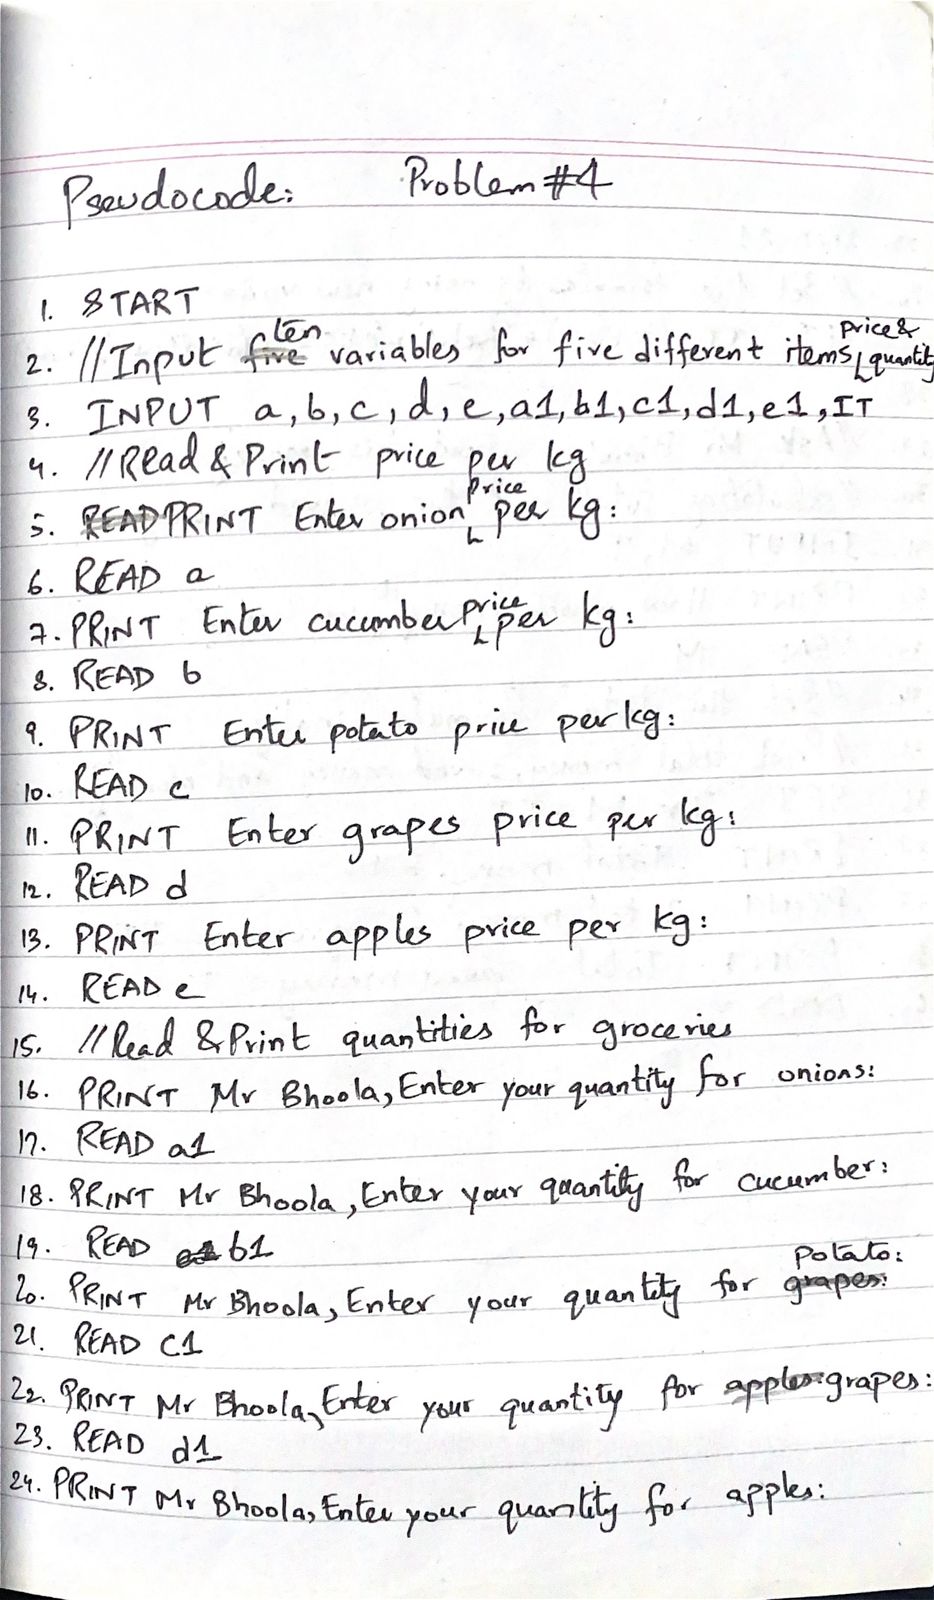 Pseudocode: Problem #4
1. START
2. //Input ten variables for five different items price & quantity
3. INPUT a, b, c, d, e, a1, b1, c1, d1, e1, IT
4. //Read & Print price per kg
5. PRINT Enter onion price per kg:
6. READ a
7. PRINT Enter cucumber price per kg:
8. READ b
9. PRINT Enter potato price per kg:
10. READ c
11. PRINT Enter grapes price per kg:
12. READ d
13. PRINT Enter apples price per kg:
14. READ e
15. //Read & Print quantities for groceries
16. PRINT Mr Bhoola, Enter your quantity for onions:
17. READ a1
18. PRINT Mr Bhoola, Enter your quantity for cucumber:
19. READ b1
20. PRINT Mr Bhoola, Enter your quantity for potato:
21. READ C1
22. PRINT Mr Bhoola, Enter your quantity for grapes:
23. READ d1
24. PRINT Mr Bhoola, Enter your quantity for apples: